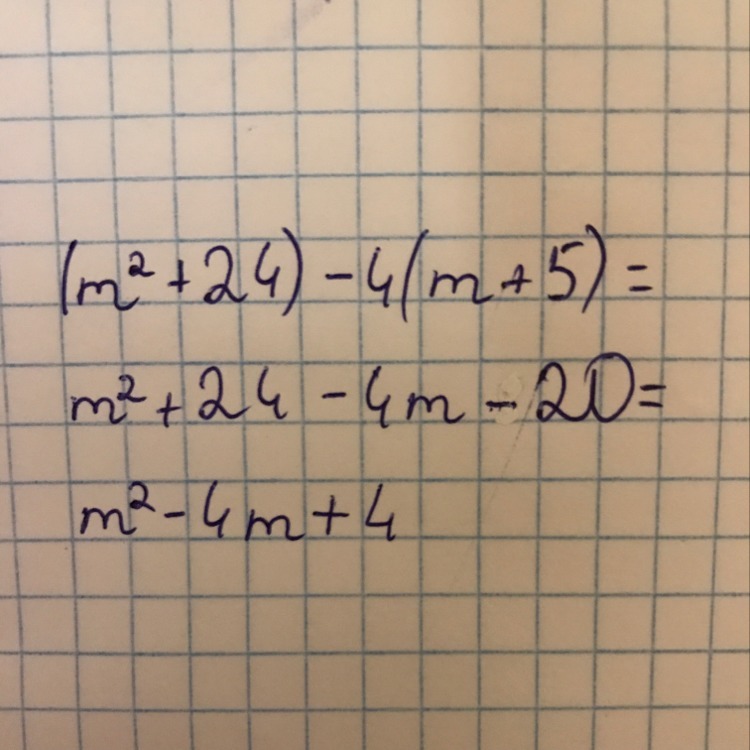 (m² + 24) - 4(m + 5) =
m² + 24 - 4m - 20 =
m² - 4m + 4